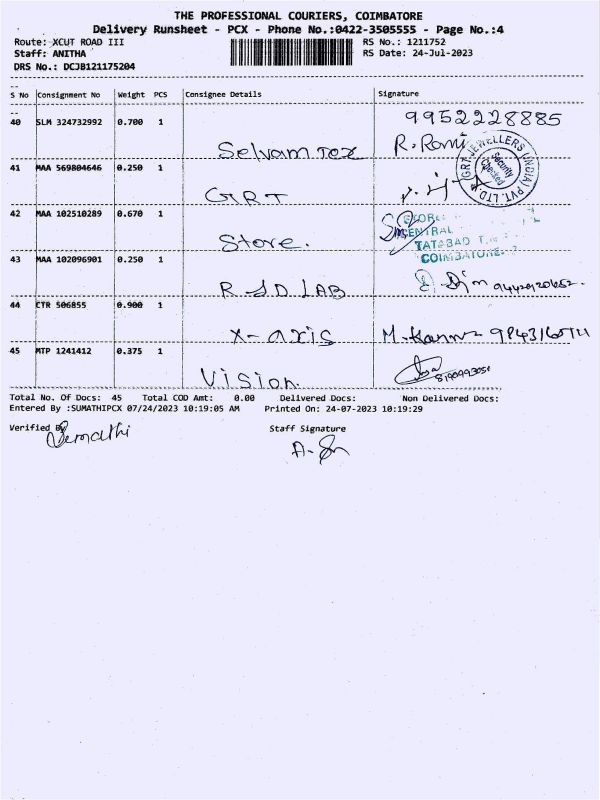 THE PROFESSIONAL COURIERS, COIMBATORE
Delivery Runsheet - PCX - Phone No.:0422-3505555 - Page No.:4
Route: XCUT ROAD III RS No.: 1211752
Staff: ANITHA RS Date: 24-Jul-2023
DRS No.: DCJB121175204
S No Consignment No Weight PCS Consignee Details Signature
40 SLM 324732992 0.700 1 9952228885
Selvam Tex R. Rani
GRT JEWELLERS (INDIA) PVT. LTD.
Security Checked
41 MAA 569804646 0.250 1
GRT
42 MAA 102510289 0.670 1
CENTRAL
Store. TATABAD
COIMBATORE
43 MAA 102096901 0.250 1
R J D LAB
44 CTR 506855 0.900 1
X-axis M.
45 MTP 1241412 0.375 1
Vision.
Total No. Of Docs: 45 Total COD Amt: 0.00 Delivered Docs: Non Delivered Docs:
Entered By :SUMATHIPCX 07/24/2023 10:19:05 AM Printed On: 24-07-2023 10:19:29
Verified By Staff Signature
Sumathi